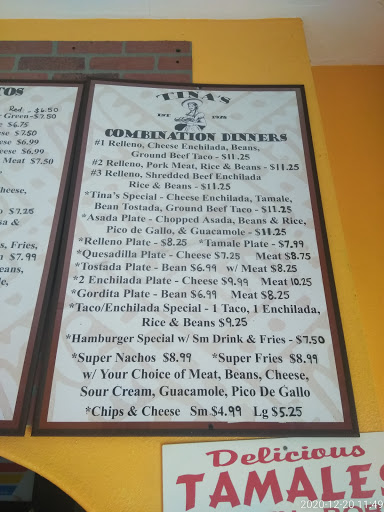 TOS
Red - $6.50
Green - $7.50
$6.75
$7.50
$6.99
$6.99
Meat $7.50
heese,
$7.25
sa &
s, Fries,
n $7.99
eans,
TINA'S
EST 1978
COMBINATION DINNERS
#1 Relleno, Cheese Enchilada, Beans,
Ground Beef Taco - $11.25
#2 Relleno, Pork Meat, Rice & Beans - $11.25
#3 Relleno, Shredded Beef Enchilada
Rice & Beans - $11.25
*Tina's Special - Cheese Enchilada, Tamale,
Bean Tostada, Ground Beef Taco - $11.25
*Asada Plate - Chopped Asada, Beans & Rice,
Pico de Gallo, & Guacamole - $11.25
*Relleno Plate - $8.25 *Tamale Plate - $7.99
*Quesadilla Plate - Cheese $7.25 Meat $8.75
*Tostada Plate - Bean $6.99 w/ Meat $8.25
*2 Enchilada Plate - Cheese $9.99 Meat 10.25
*Gordita Plate - Bean $6.99 Meat $8.25
*Taco/Enchilada Special - 1 Taco, 1 Enchilada,
Rice & Beans $9.25
*Hamburger Special w/ Sm Drink & Fries - $7.50
*Super Nachos $8.99 *Super Fries $8.99
w/ Your Choice of Meat, Beans, Cheese,
Sour Cream, Guacamole, Pico De Gallo
*Chips & Cheese Sm $4.99 Lg $5.25
Delicious
TAMALES
2020-12-20 11:49